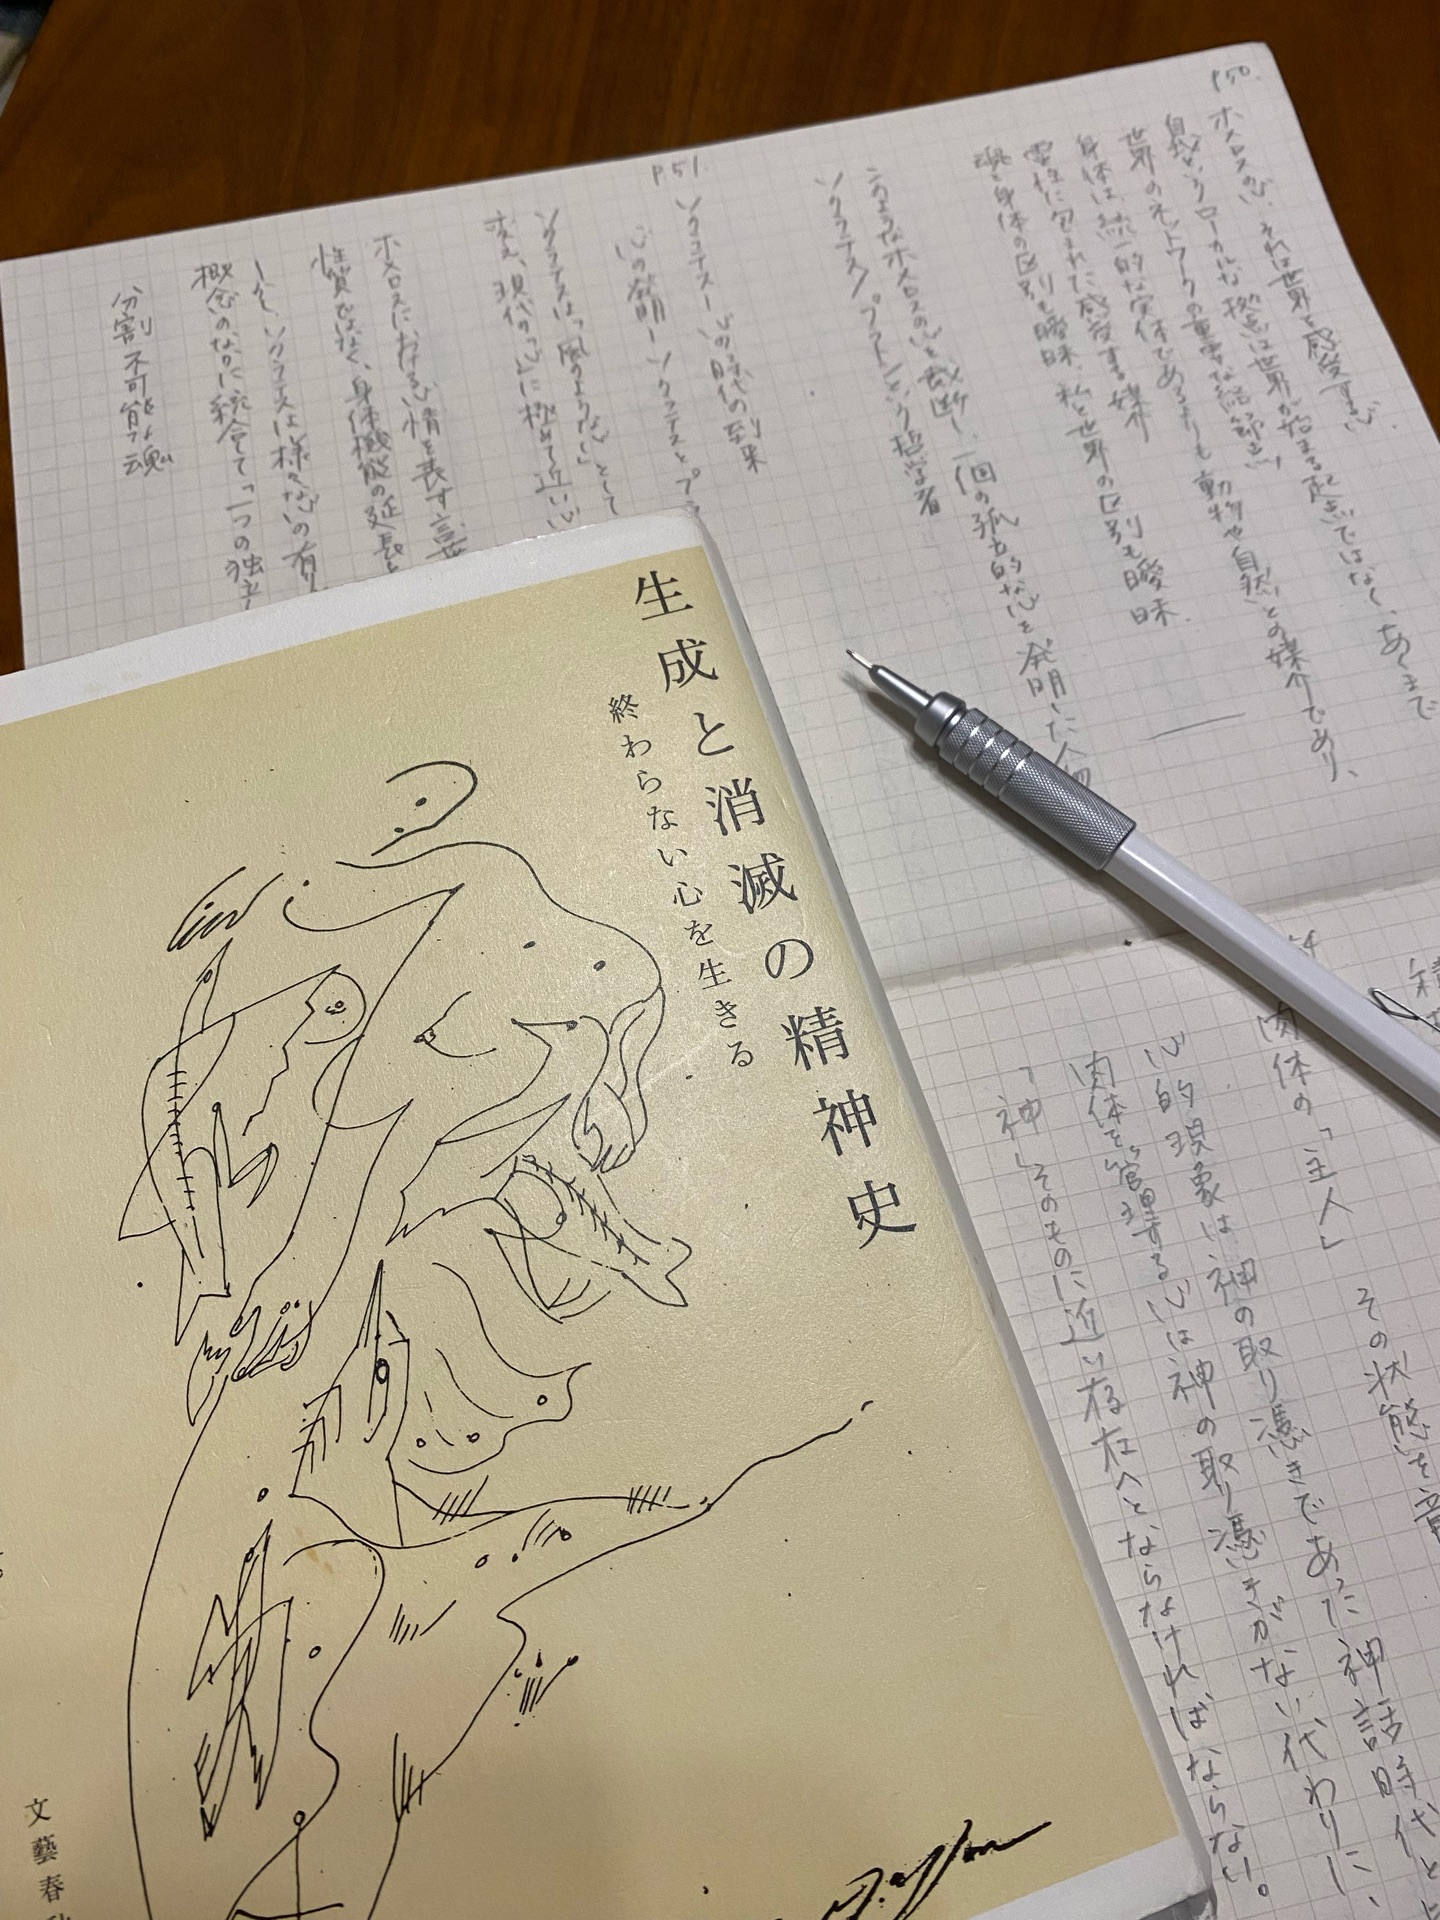 生成と消滅の精神史
終わらない心を生きる
文藝春
P50.
ホメロスの心、それは世界を感受する心
自我というローカルな拠点は世界が始まる起点ではなく、あくまで
世界のネットワークの重要な結節点
身体は統一的な実体であるよりも動物や自然との媒介であり、
霊性に包まれた感受する媒介
魂と身体の区別も曖昧、私と世界の区別も曖昧.
このようなホメロスの心を裁断し、一個の孤立的な心を発明した人物
ソクラテス/プラトンという哲学者
P51.
ソクラテスー心の時代の到来
心の発明ーソクラテスとプラ
ソクラテスは「風のような心」として
変え、現代の「心」に極めて近い心
ホメロスにおける心情を表す言葉
性質ではなく、身体機能の延長と
しかし、ソクラテスは様々な心の有り
概念のなかに統合して「一つの独立
分割不可能な魂
その状態を
肉体の「主人」
心的現象は神の取り憑きであった神話時代と
肉体を管理する心は神の取り憑きがない代わりに、
「神」そのものに近い存在へとならなければならない。